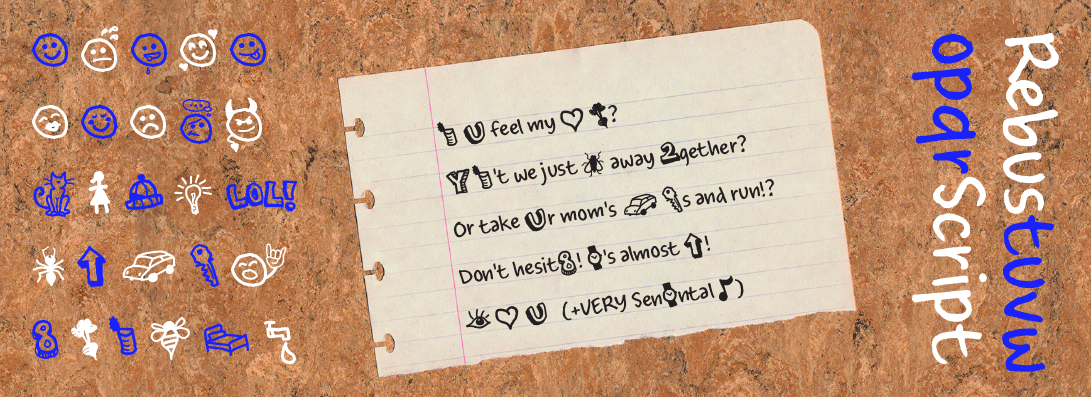 LOL!
8
U feel my ?
Y 't we just away 2gether?
Or take Ur mom's s and run!?
Don't hesit8! 's almost !
U (+VERY Sen ntal )
Rebustuvw
opqrScript